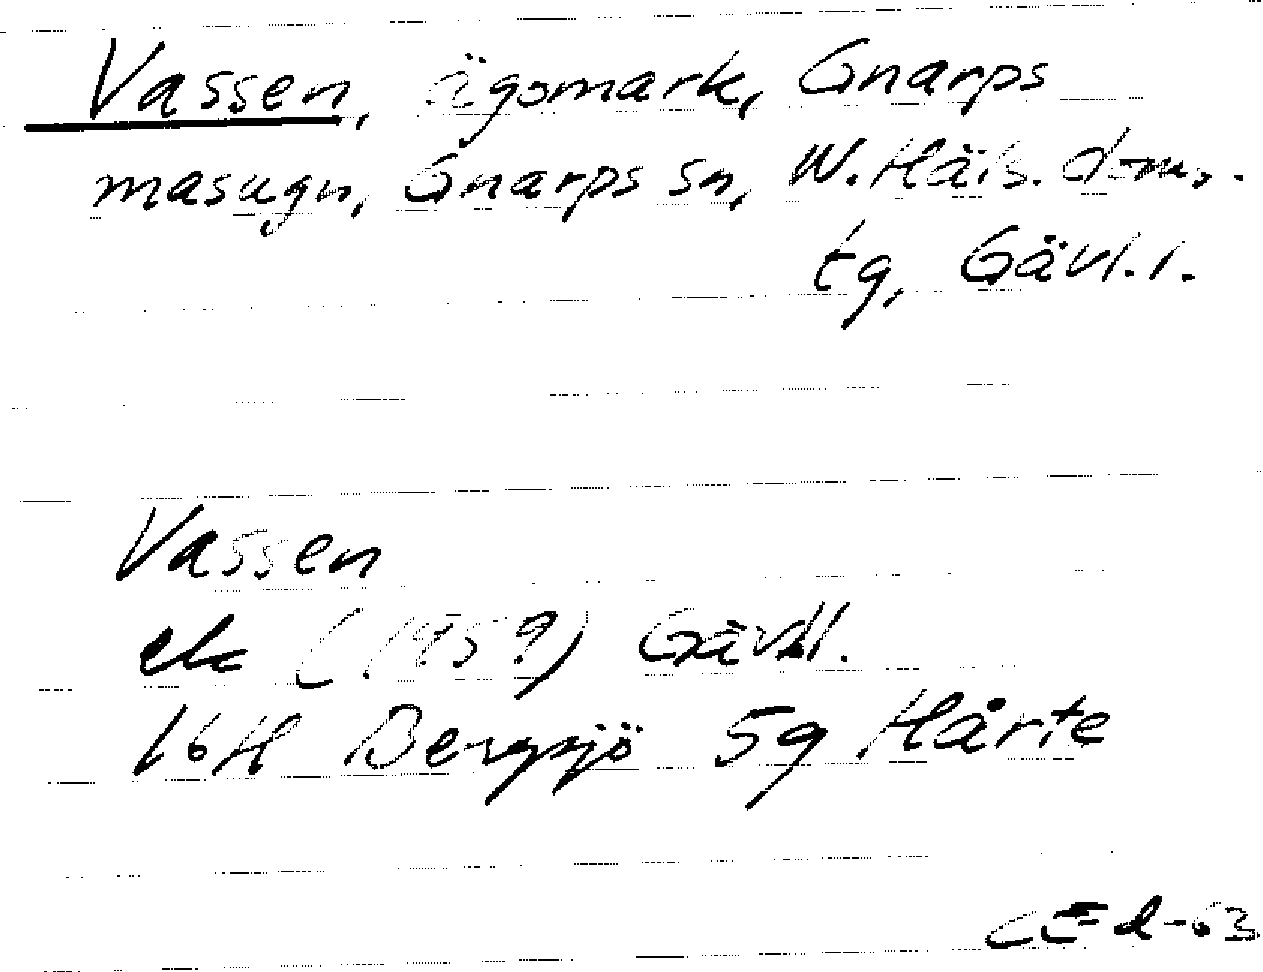 Vassen, ägomark, Gnarps
masugn, Gnarps sn, N. Häls. doms.
tg, Gävl. l.
Vassen
ek (1959) Gävl l.
16H Bergsjö 5g Hårte
CE d-63